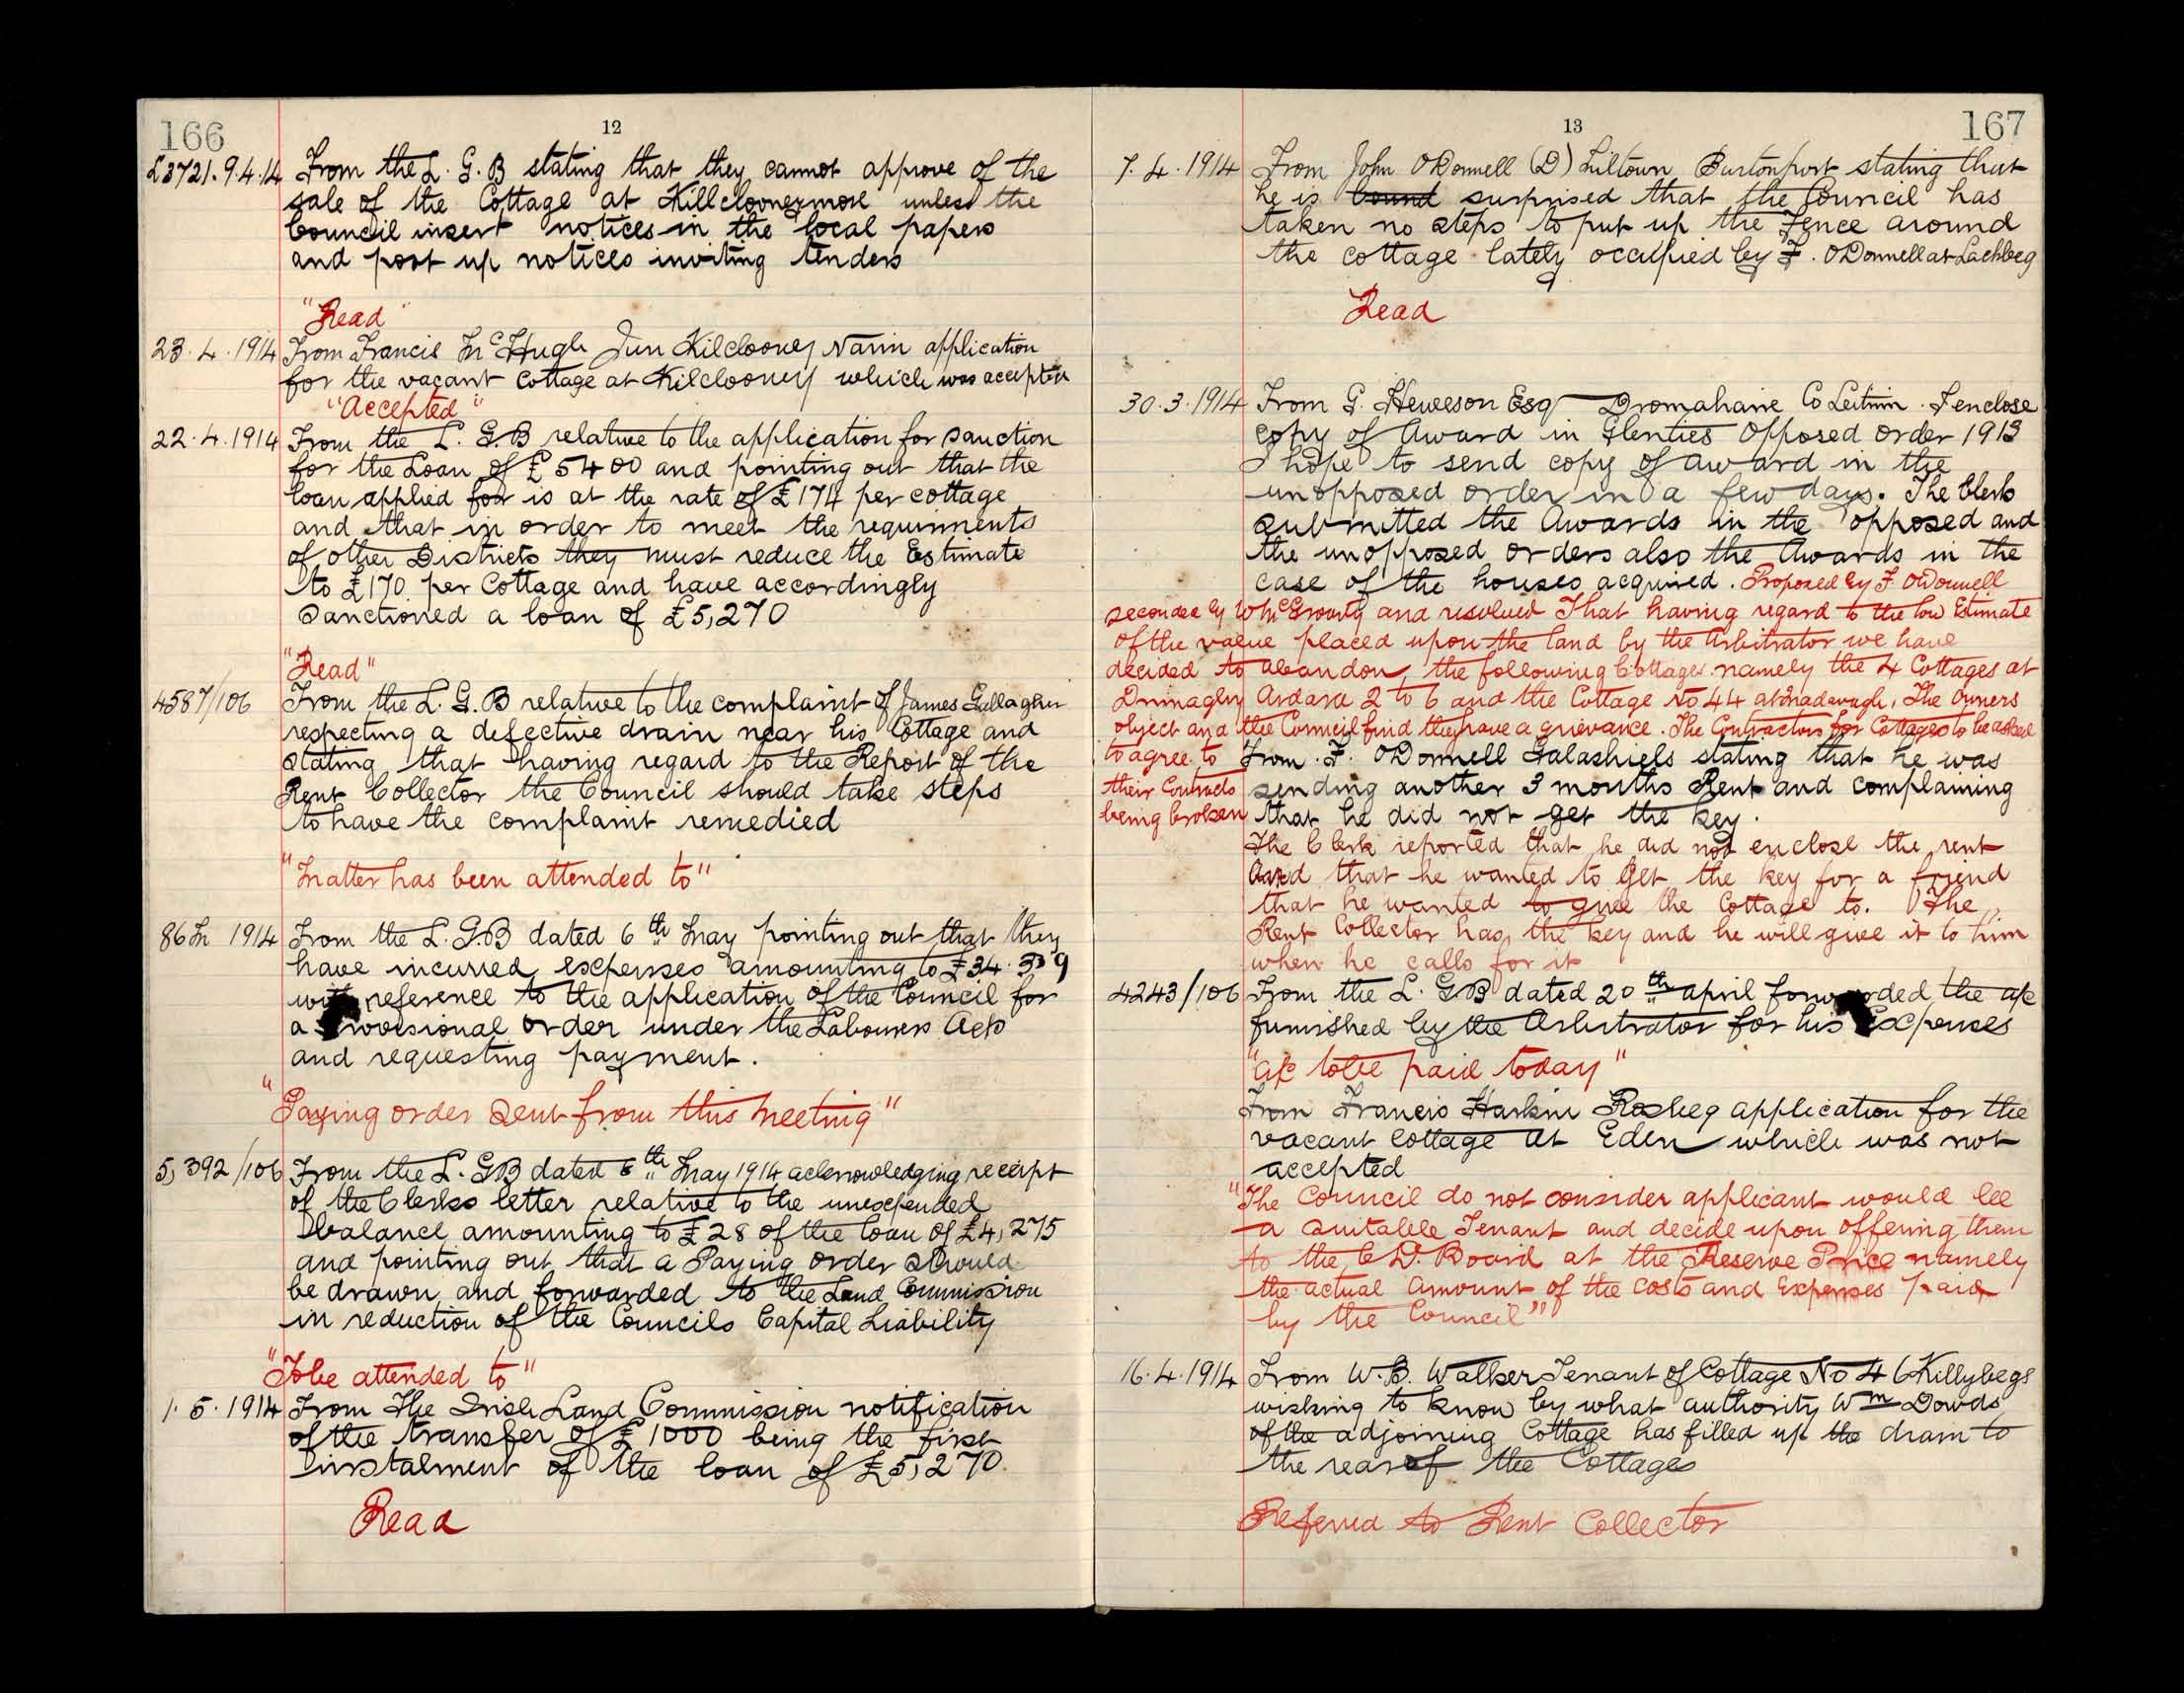 166
12
£3721. 9.4.14 From the L. G. B stating that they cannot approve of the
sale of the Cottage at Killcloonermore unless the
Council insert notices in the local papers
and post up notices inviting tenders
"Read"
23.4.1914 From Francis McHugh Jun Kilclooney Narin application
for the vacant Cottage at Kilclooney which was accepted
"Accepted"
22.4.1914 From the L. G. B relative to the application for sanction
for the Loan of £5400 and pointing out that the
loan applied for is at the rate of £174 per cottage
and that in order to meet the requirments
of other Districts they must reduce the Estimate
to £170 per Cottage and have accordingly
Sanctioned a loan of £5,270
"Read"
4587/106 From the L. G. B relative to the complaint of James Gallagher
respecting a defective drain near his Cottage and
stating that having regard to the Report of the
Rent Collector the Council should take steps
to have the complaint remedied
"Matter has been attended to"
86 M 1914 From the L. G.B dated 6th May pointing out that they
have incurred expenses amounting to £34.
reference to the application of the Council for
a Provisional Order under the Labourers Acts
and requesting payment.
"Paying order sent from this meeting"
5,392/106 From the L. GB dated 6th May 1914 acknowledging receipt
of the Clerks letter relative to the unexpended
balance amounting to £28 of the loan of £4,275
and pointing out that a Paying order should
be drawn and forwarded to the Land Commission
in reduction of the Councils Capital Liability
"To be attended to"
1.5.1914 From The Irish Land Commission notification
of the transfer of £1000 being the first
instalment of the loan of £5,270.
Read
13
167
7.4.1914 From John ODonnell (D) Liltown Burtonport stating that
he is bound surprised that the Council has
taken no steps to put up the Fence around
the cottage lately occupied by F. ODonnell at Lackbeg
Read
30.3.1914 From G. Heweson Esq Dromahaire Co Leitrim. I enclose
copy of Award in Glenties Opposed Order 1913
I hope to send copy of award in the
unopposed order in a few days. The Clerk
submitted the Awards in the opposed and
the unopposed orders also the Awards in the
case of the houses acquired. Proposed by F. ODonnell
seconded by W McGrouty and resolved That having regard to the low Estimate
of the value placed upon the land by the Arbitrator we have
decided to abandon the following Cottages namely the 4 Cottages at
Drimaghy Ardara 2 to 6 and the Cottage No 44 at The Owners
object and the Council find they have a grievance. The Contractors for Cottages to be asked
to agree to
their Contracts
being broken
From F. ODonnell Galashiels stating that he was
sending another 3 months Rent and complaining
that he did not get the key.
The Clerk reported that he did not enclose the rent
and that he wanted to get the key for a friend
that he wanted to give the Cottage to. The
Rent Collector has the key and he will give it to him
when he calls for it
4243/106 From the L. GB dated 20th april forwarded the a/c
furnished by the Arbitrator for his Expenses
"a/c to be paid today"
From Francis Harkin Rosbeg application for the
vacant Cottage at Eden which was not
accepted
"The Council do not consider applicant would be
a suitable Tenant and decide upon offering them
to the C D. Board at the Reserve Price namely
the actual amount of the costs and Expenses paid
by the Council"
16.4.1914 From W.B. Walker Tenant of Cottage No 46 Killybegs
wishing to know by what authority Wm Dowds
of the adjoining Cottage has filled up the drain to
the rear of the Cottages
Referred to Rent Collector